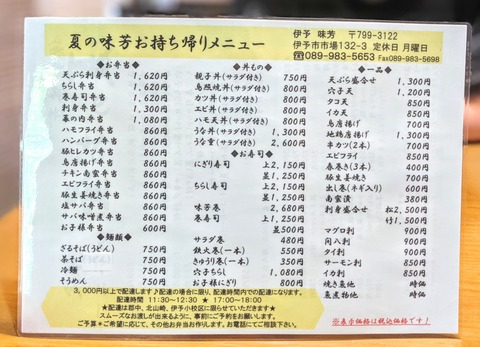 夏の味芳お持ち帰りメニュー
伊予 味芳 〒799-3122
伊予市市場132-3 定休日 月曜日
☎089-983-5653 Fax089-983-5698
◆お弁当◆
天ぷら刺身弁当 1,620円
ちらし弁当 1,620円
巻寿司弁当 1,620円
刺身弁当 1,300円
幕の内弁当 1,080円
ハモフライ弁当 860円
ハンバーグ弁当 860円
豚ヒレカツ弁当 860円
鳥唐揚げ弁当 860円
チキン南蛮弁当 860円
エビフライ弁当 860円
豚生姜焼き弁当 860円
塩サバ弁当 860円
サバ味噌煮弁当 860円
お子様弁当 600円
◆麺類◆
ざるそば(うどん) 750円
茶そば(うどん) 750円
冷麺 750円
そうめん 750円
◆丼もの◆
親子丼(サラダ付き) 750円
鳥照焼丼(サラダ付き) 800円
カツ丼(サラダ付き) 800円
エビ丼(サラダ付き) 800円
ハモ天丼(サラダ付き) 800円
うな丼(サラダ付き) 1,300円
うな重(サラダ付き) 2,600円
◆お寿司◆
にぎり寿司 上2,150円
並1,250円
ちらし寿司 上2,150円
並1,250円
味芳巻 2,680円
巻寿司 上1,080円
並500円
サラダ巻 480円
鉄火巻(一本) 550円
きゅうり巻(一本) 350円
穴子ちらし 1,080円
お子様にぎり 800円
◆一品◆
天ぷら盛合せ 1,300円
穴子天 1,200円
タコ天 850円
イカ天 850円
鳥唐揚げ 700円
地鶏唐揚げ 1,300円
串カツ(2本) 700円
エビフライ 850円
春巻き(3本) 400円
豚生姜焼き 700円
出し巻(ネギ入り) 600円
南蛮漬 380円
刺身盛合せ 松2,500円
竹1,500円
マグロ刺 900円
間八刺 900円
タイ刺 900円
サーモン刺 850円
イカ刺 850円
焼き魚他 時価
魚煮物他 時価
3,000円以上で配達します♪配達の場合に限り、配達時間内での配達になります。
配達時間 11:30〜12:30 ★ 17:00〜18:00
★配達は郡中、北山崎、伊予小校区に限らせていただきます★
スムーズなお渡しが出来るように、事前にご予約をお願いします。
ご予算・ご希望に応じて、その他お弁当お作りします。お電話にてご相談下さい。
※表示価格は税込価格です!